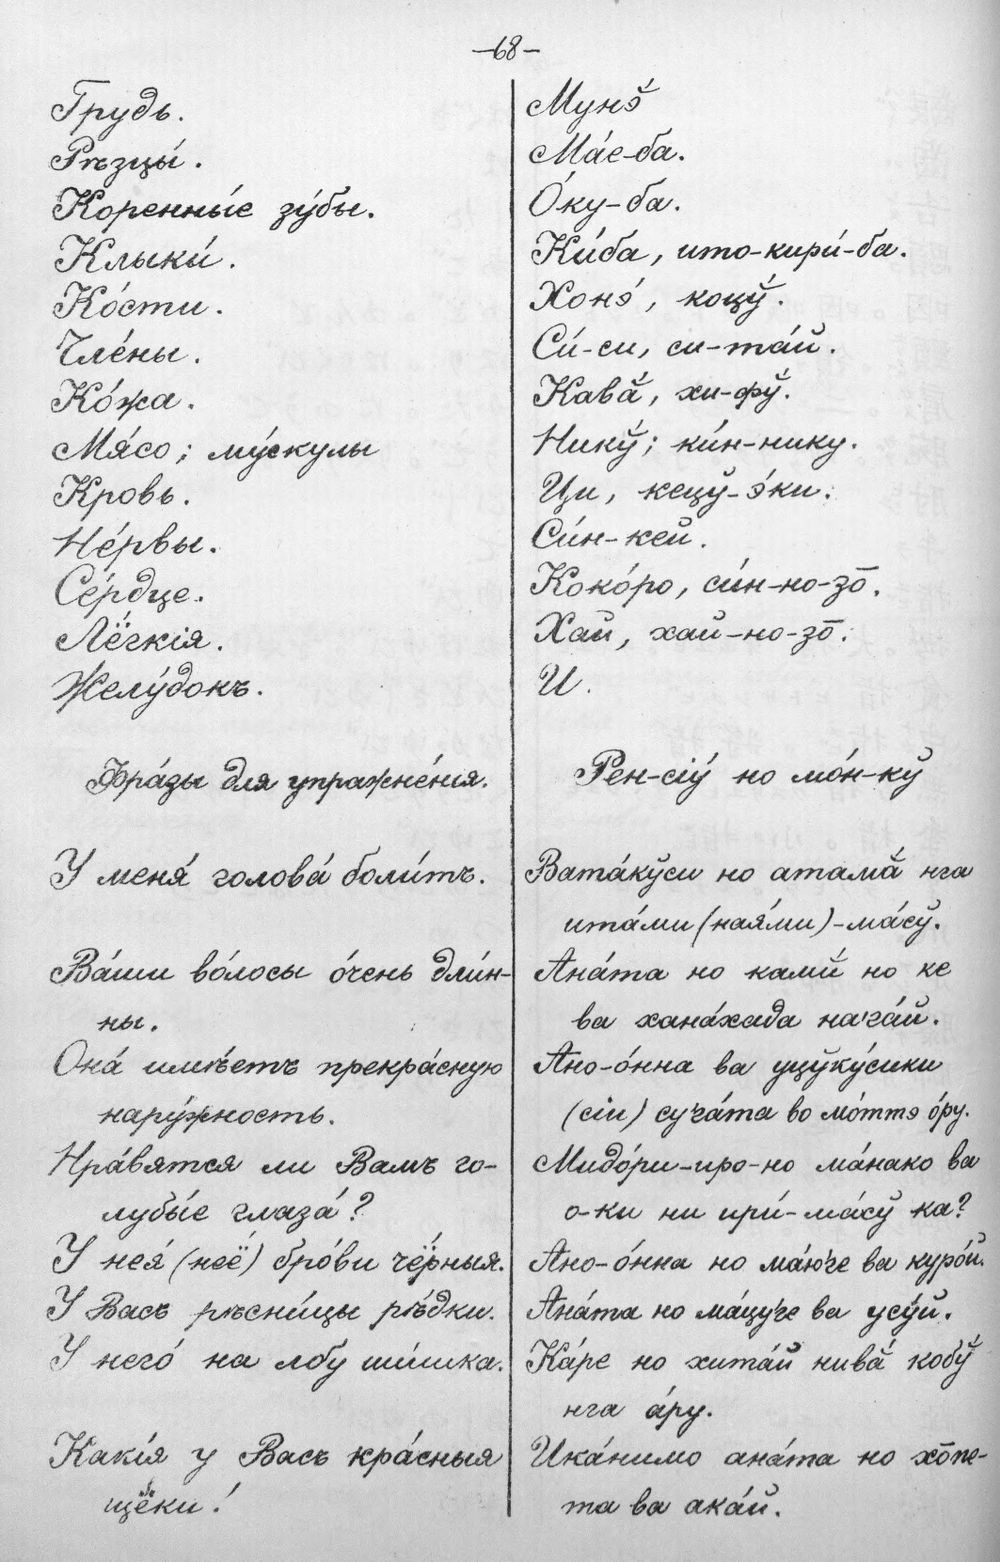 —68—
Грудь.
Рѣзцы́.
Коренны́е зу́бы.
Клыки́.
Ко́сти.
Чле́ны.
Ко́жа.
Мя́со; му́скулы
Кровь.
Не́рвы.
Се́рдце.
Лё́гкія.
Желу́докъ.
Фра́зы для упражне́нія.
У меня́ голова́ боли́тъ.
Ва́ши во́лосы о́чень дли́н-
ны.
Она́ имѣ́етъ прекра́сную
нару́жность.
Нра́вятся ли Вамъ го-
лубы́е глаза́?
У нея́ (неё) бро́ви чё́рныя.
У Васъ рѣсни́цы рѣ́дки.
У него́ на лбу ши́шка.
Какі́я у Васъ кра́сныя
щёки!
Мунэ̆́
Ма́е-ба.
О́ку-ба.
Ки́ба, ито-кири́-ба.
Хонэ́, коцӯ̆́.
Си́-си, си-та́й.
Кавӑ́, хи-фў́.
Никў́; ки́н-нику.
Ци, кецў-э́ки.
Си́н-кей.
Коко́ро, си́н-но-зо̄.
Хай, хай-но-зо̄.
И.
Рен-сію́ но мо́н-кў
Вата́кўси но атамӑ́ нга
ита́ми (ная́ми)-ма́сў.
Ана́та но камй́ но ке
ва хана́хада нага́й.
Ано-о́нна ва уцўку́сики
(сіи) суга́та во мо́ттэ о́ру.
Мидо́ри-иро-но ма́нако ва
о-ки ни ири́-ма́сў ка?
Ано-о́нна но маю́ге ва куро́й.
Ана́та но мацу́ге ва усу́й.
Ка́ре но хита́й нивӑ́ кобў́
нга а́ру.
Ика́нимо ана́та но хо̄пе-
та ва ака́й.